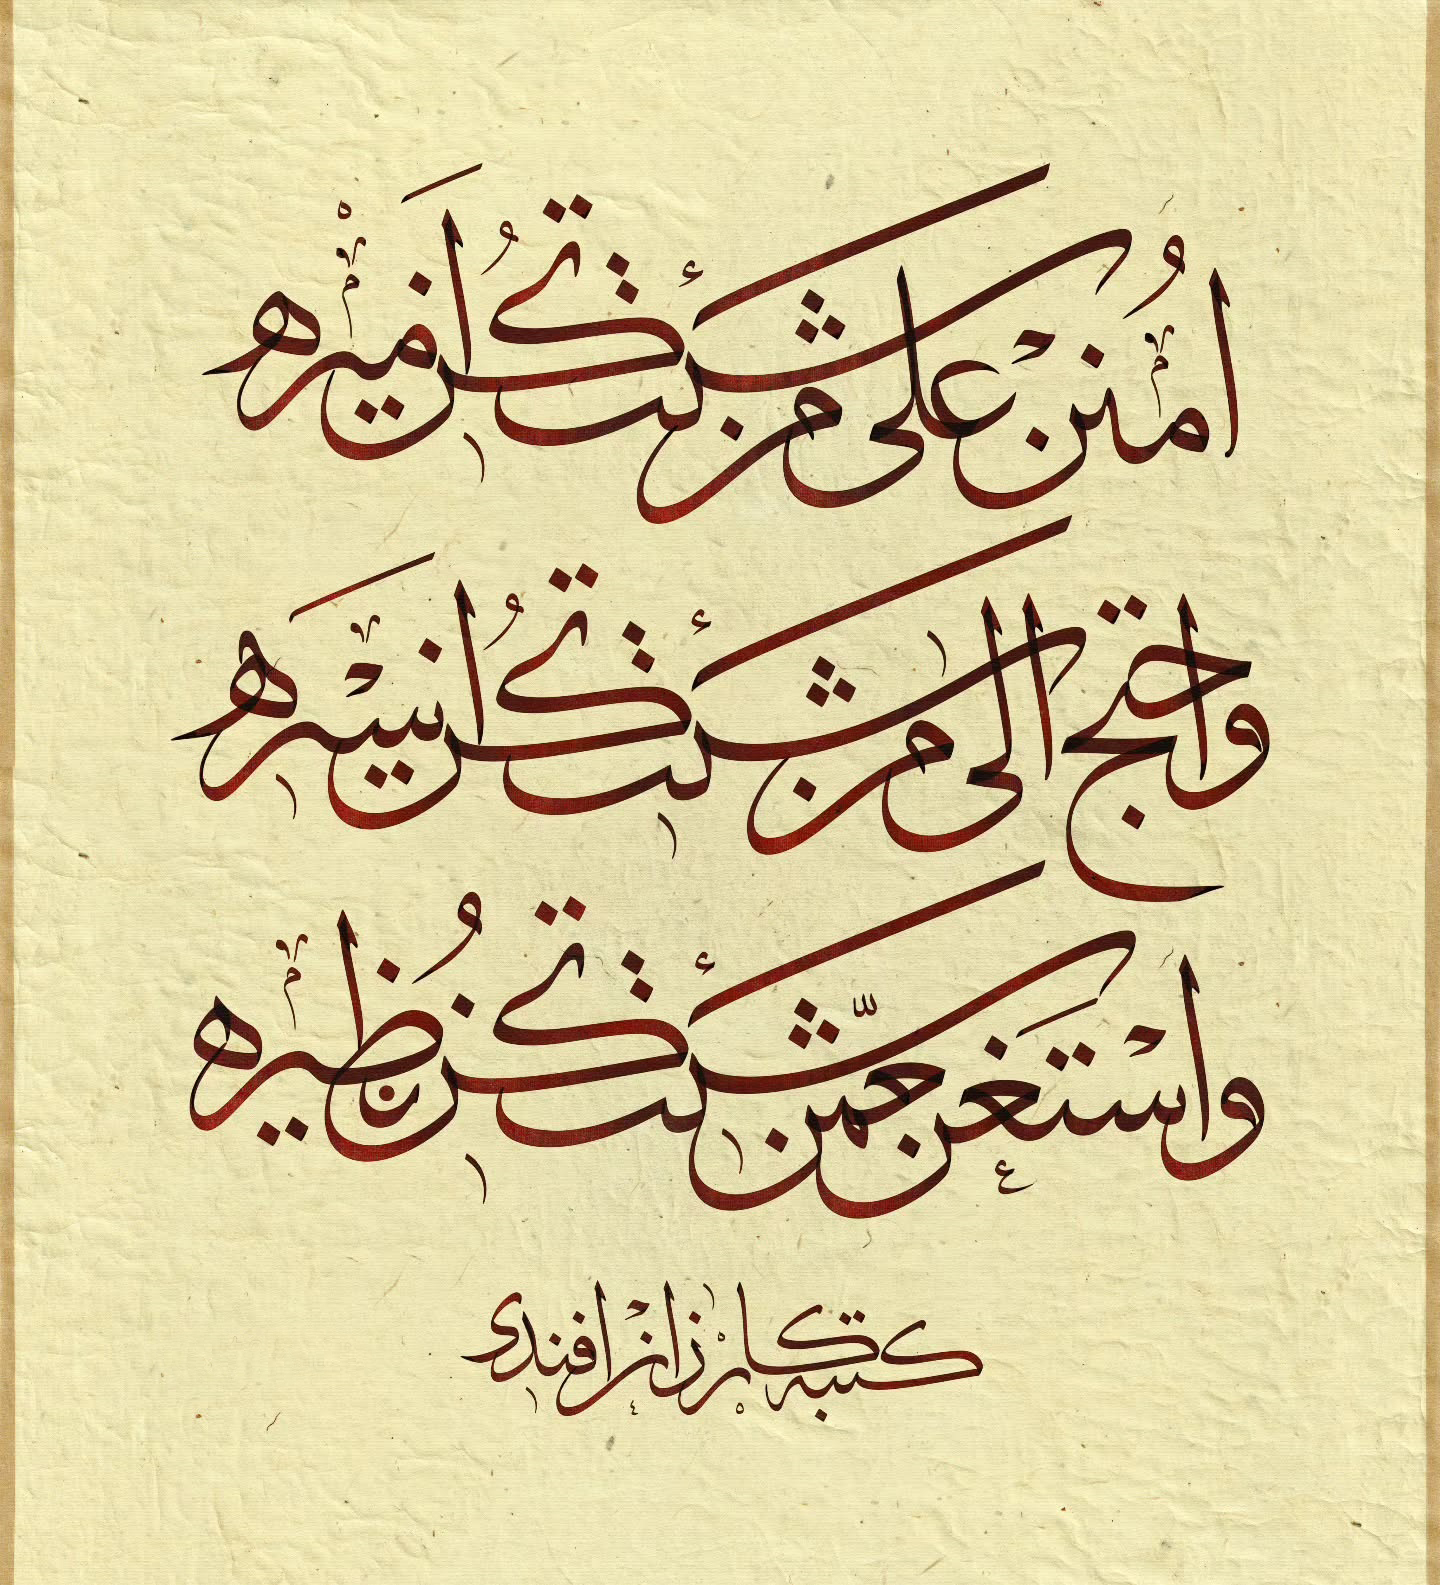 امنُن على من شئت تكُن اميره
واحتج الى من شئت تكُن اسيره
واستغن عمّن شئت تكن نُظيره
كتبه كارزان افندي